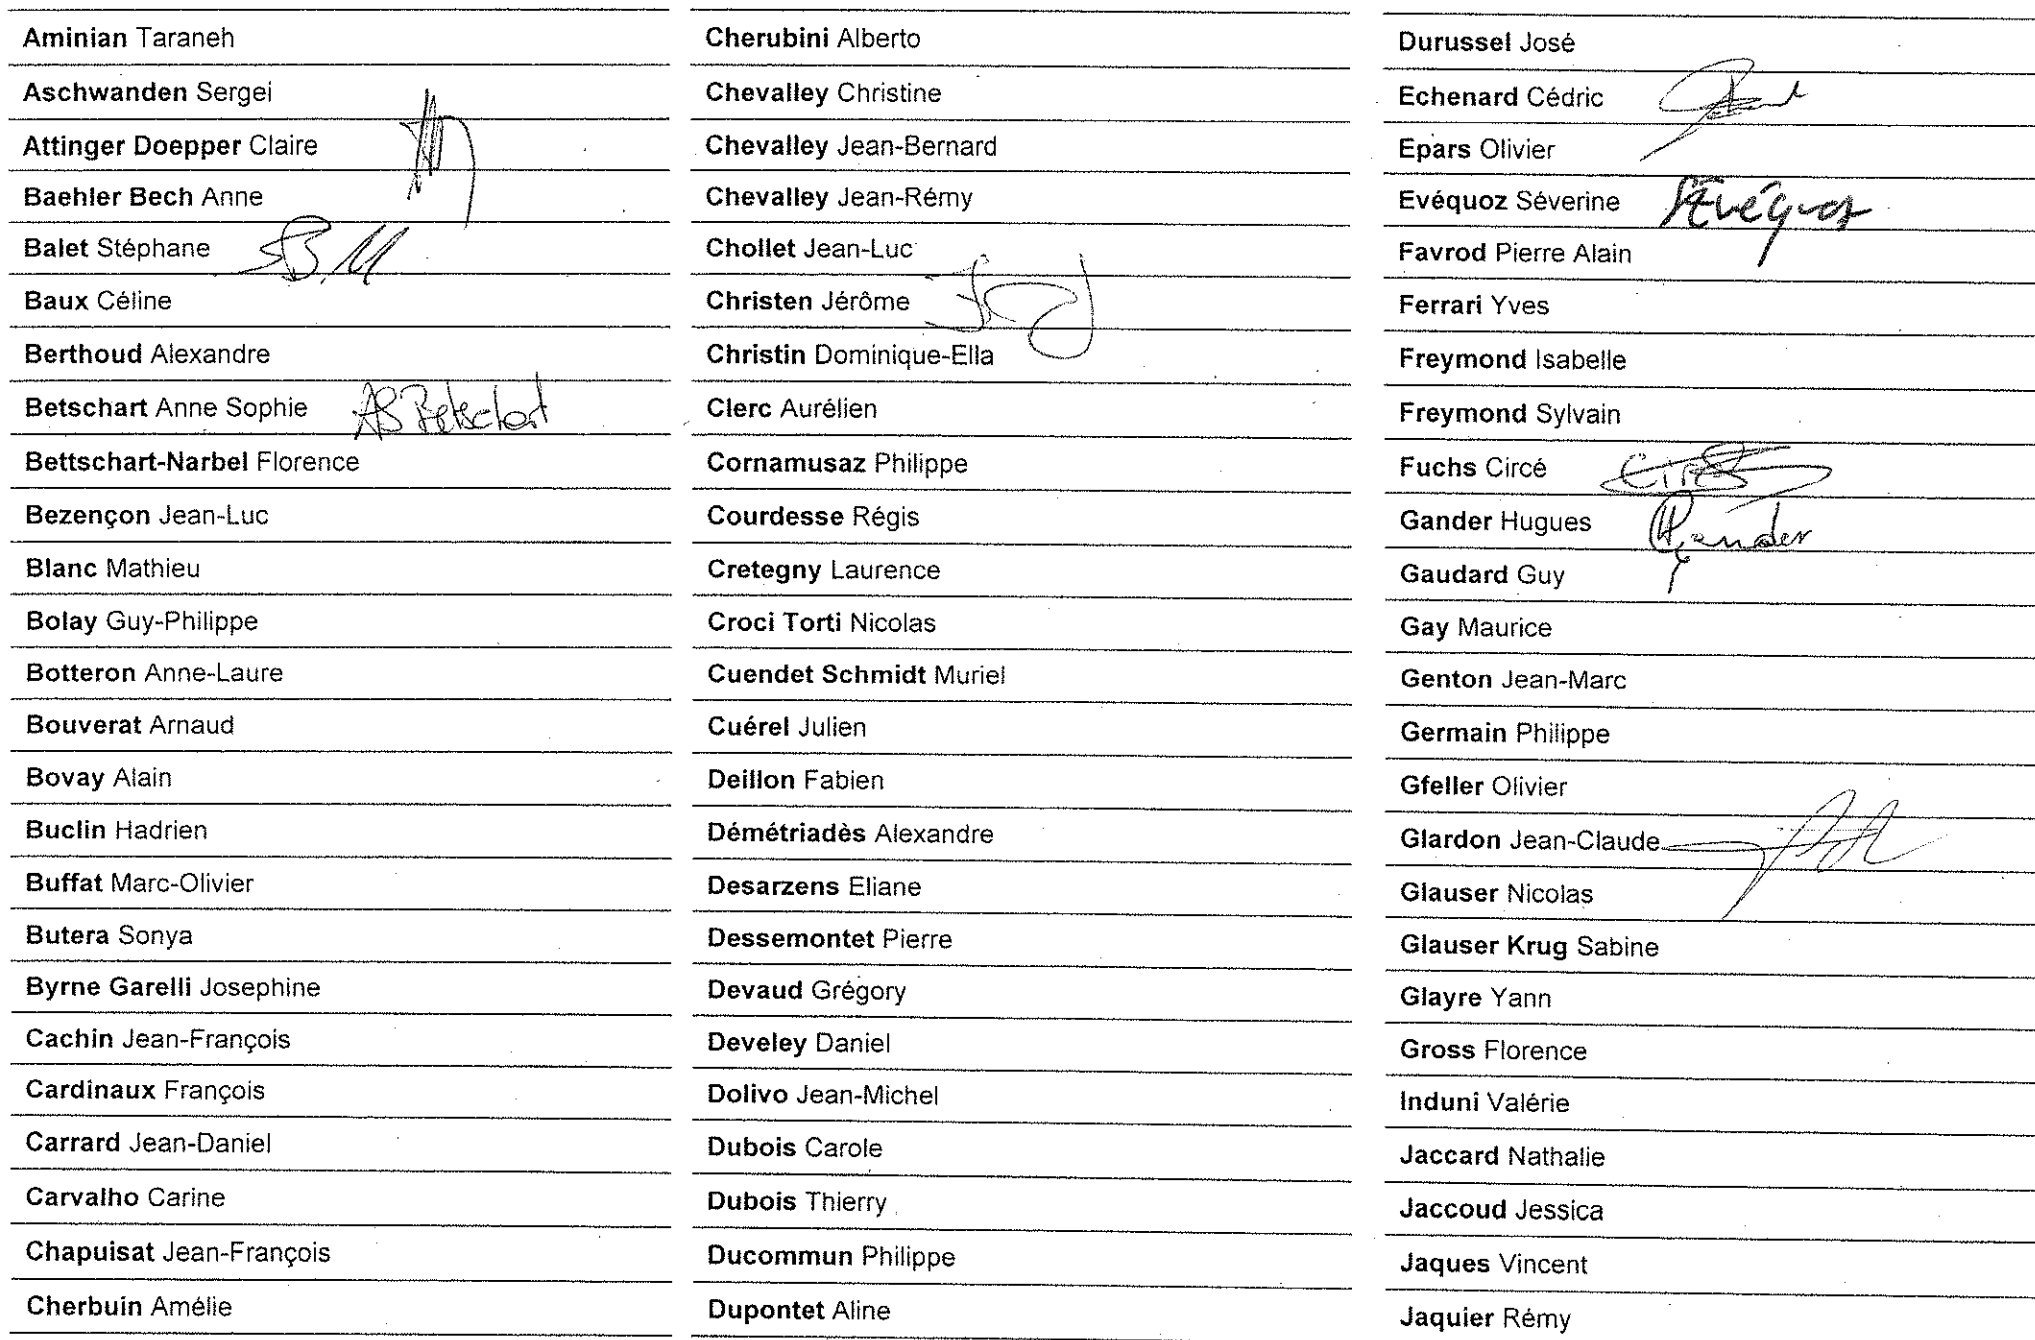 Aminian Taraneh
Aschwanden Sergei
Attinger Doepper Claire
Baehler Bech Anne
Balet Stéphane
Baux Céline
Berthoud Alexandre
Betschart Anne Sophie AS Betschart
Bettschart-Narbel Florence
Bezençon Jean-Luc
Blanc Mathieu
Bolay Guy-Philippe
Botteron Anne-Laure
Bouverat Arnaud
Bovay Alain
Buclin Hadrien
Buffat Marc-Olivier
Butera Sonya
Byrne Garelli Josephine
Cachin Jean-François
Cardinaux François
Carrard Jean-Daniel
Carvalho Carine
Chapuisat Jean-François
Cherbuin Amélie
Cherubini Alberto
Chevalley Christine
Chevalley Jean-Bernard
Chevalley Jean-Rémy
Chollet Jean-Luc
Christen Jérôme
Christin Dominique-Ella
Clerc Aurélien
Cornamusaz Philippe
Courdesse Régis
Cretegny Laurence
Croci Torti Nicolas
Cuendet Schmidt Muriel
Cuérel Julien
Deillon Fabien
Démétriadès Alexandre
Desarzens Eliane
Dessemontet Pierre
Devaud Grégory
Develey Daniel
Dolivo Jean-Michel
Dubois Carole
Dubois Thierry
Ducommun Philippe
Dupontet Aline
Durussel José
Echenard Cédric
Epars Olivier
Evéquoz Séverine SEvéquoz
Favrod Pierre Alain
Ferrari Yves
Freymond Isabelle
Freymond Sylvain
Fuchs Circé
Gander Hugues HGander
Gaudard Guy
Gay Maurice
Genton Jean-Marc
Germain Philippe
Gfeller Olivier
Glardon Jean-Claude
Glauser Nicolas
Glauser Krug Sabine
Glayre Yann
Gross Florence
Induni Valérie
Jaccard Nathalie
Jaccoud Jessica
Jaques Vincent
Jaquier Rémy